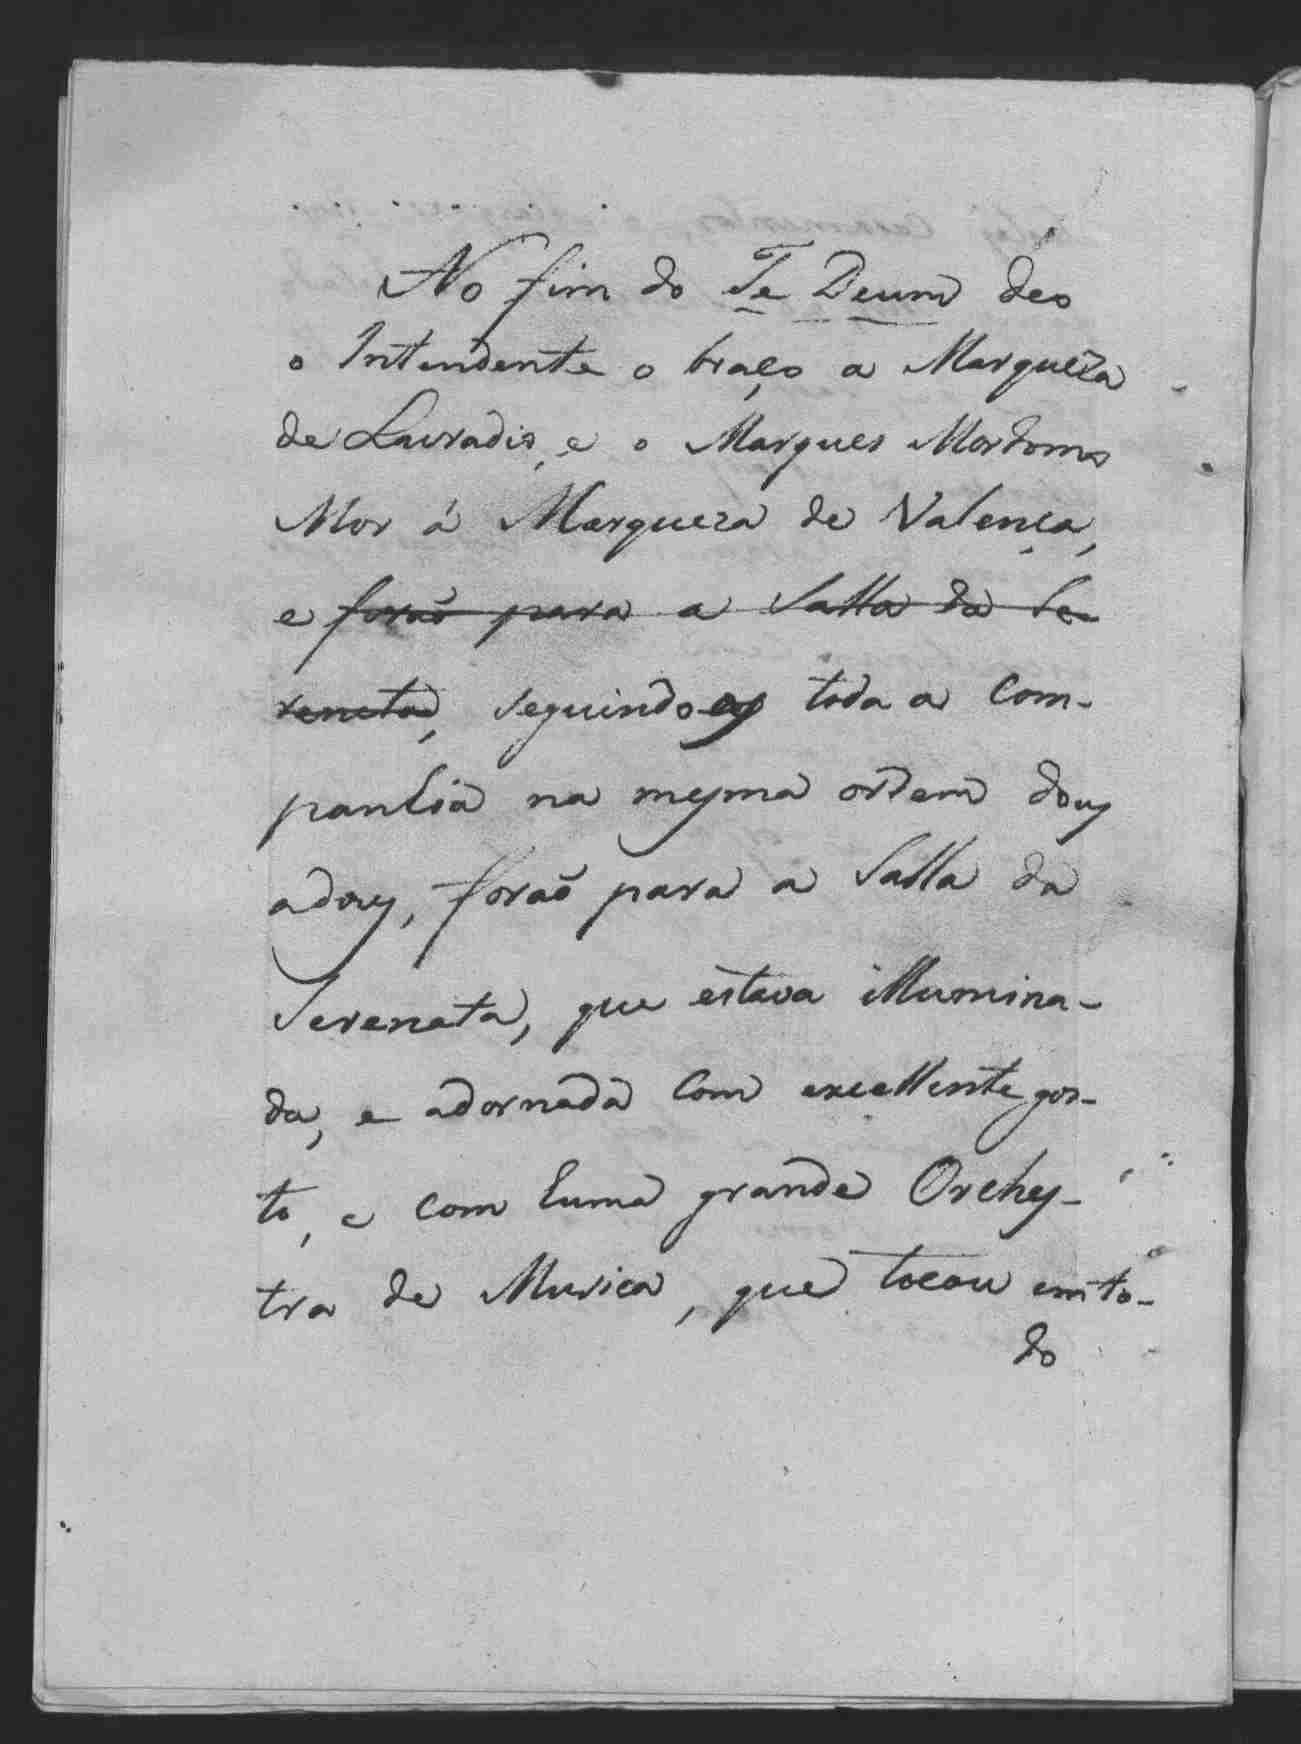 No fim do Te Deum deo
o Intendente o braço a Marqueza
de Lavradio, e o Marques Mordomo
Mor á Marqueza de Valença,
e forão para a Salla da Se-
renata, seguindo-os toda a Com-
panhia na mesma ordem dous
a dous, forão para a Salla da
Serenata, que estava illumina-
da, e adornada com excellente gos-
to, e com huma grande Orches-
tra de Musica, que tocou em to-
do